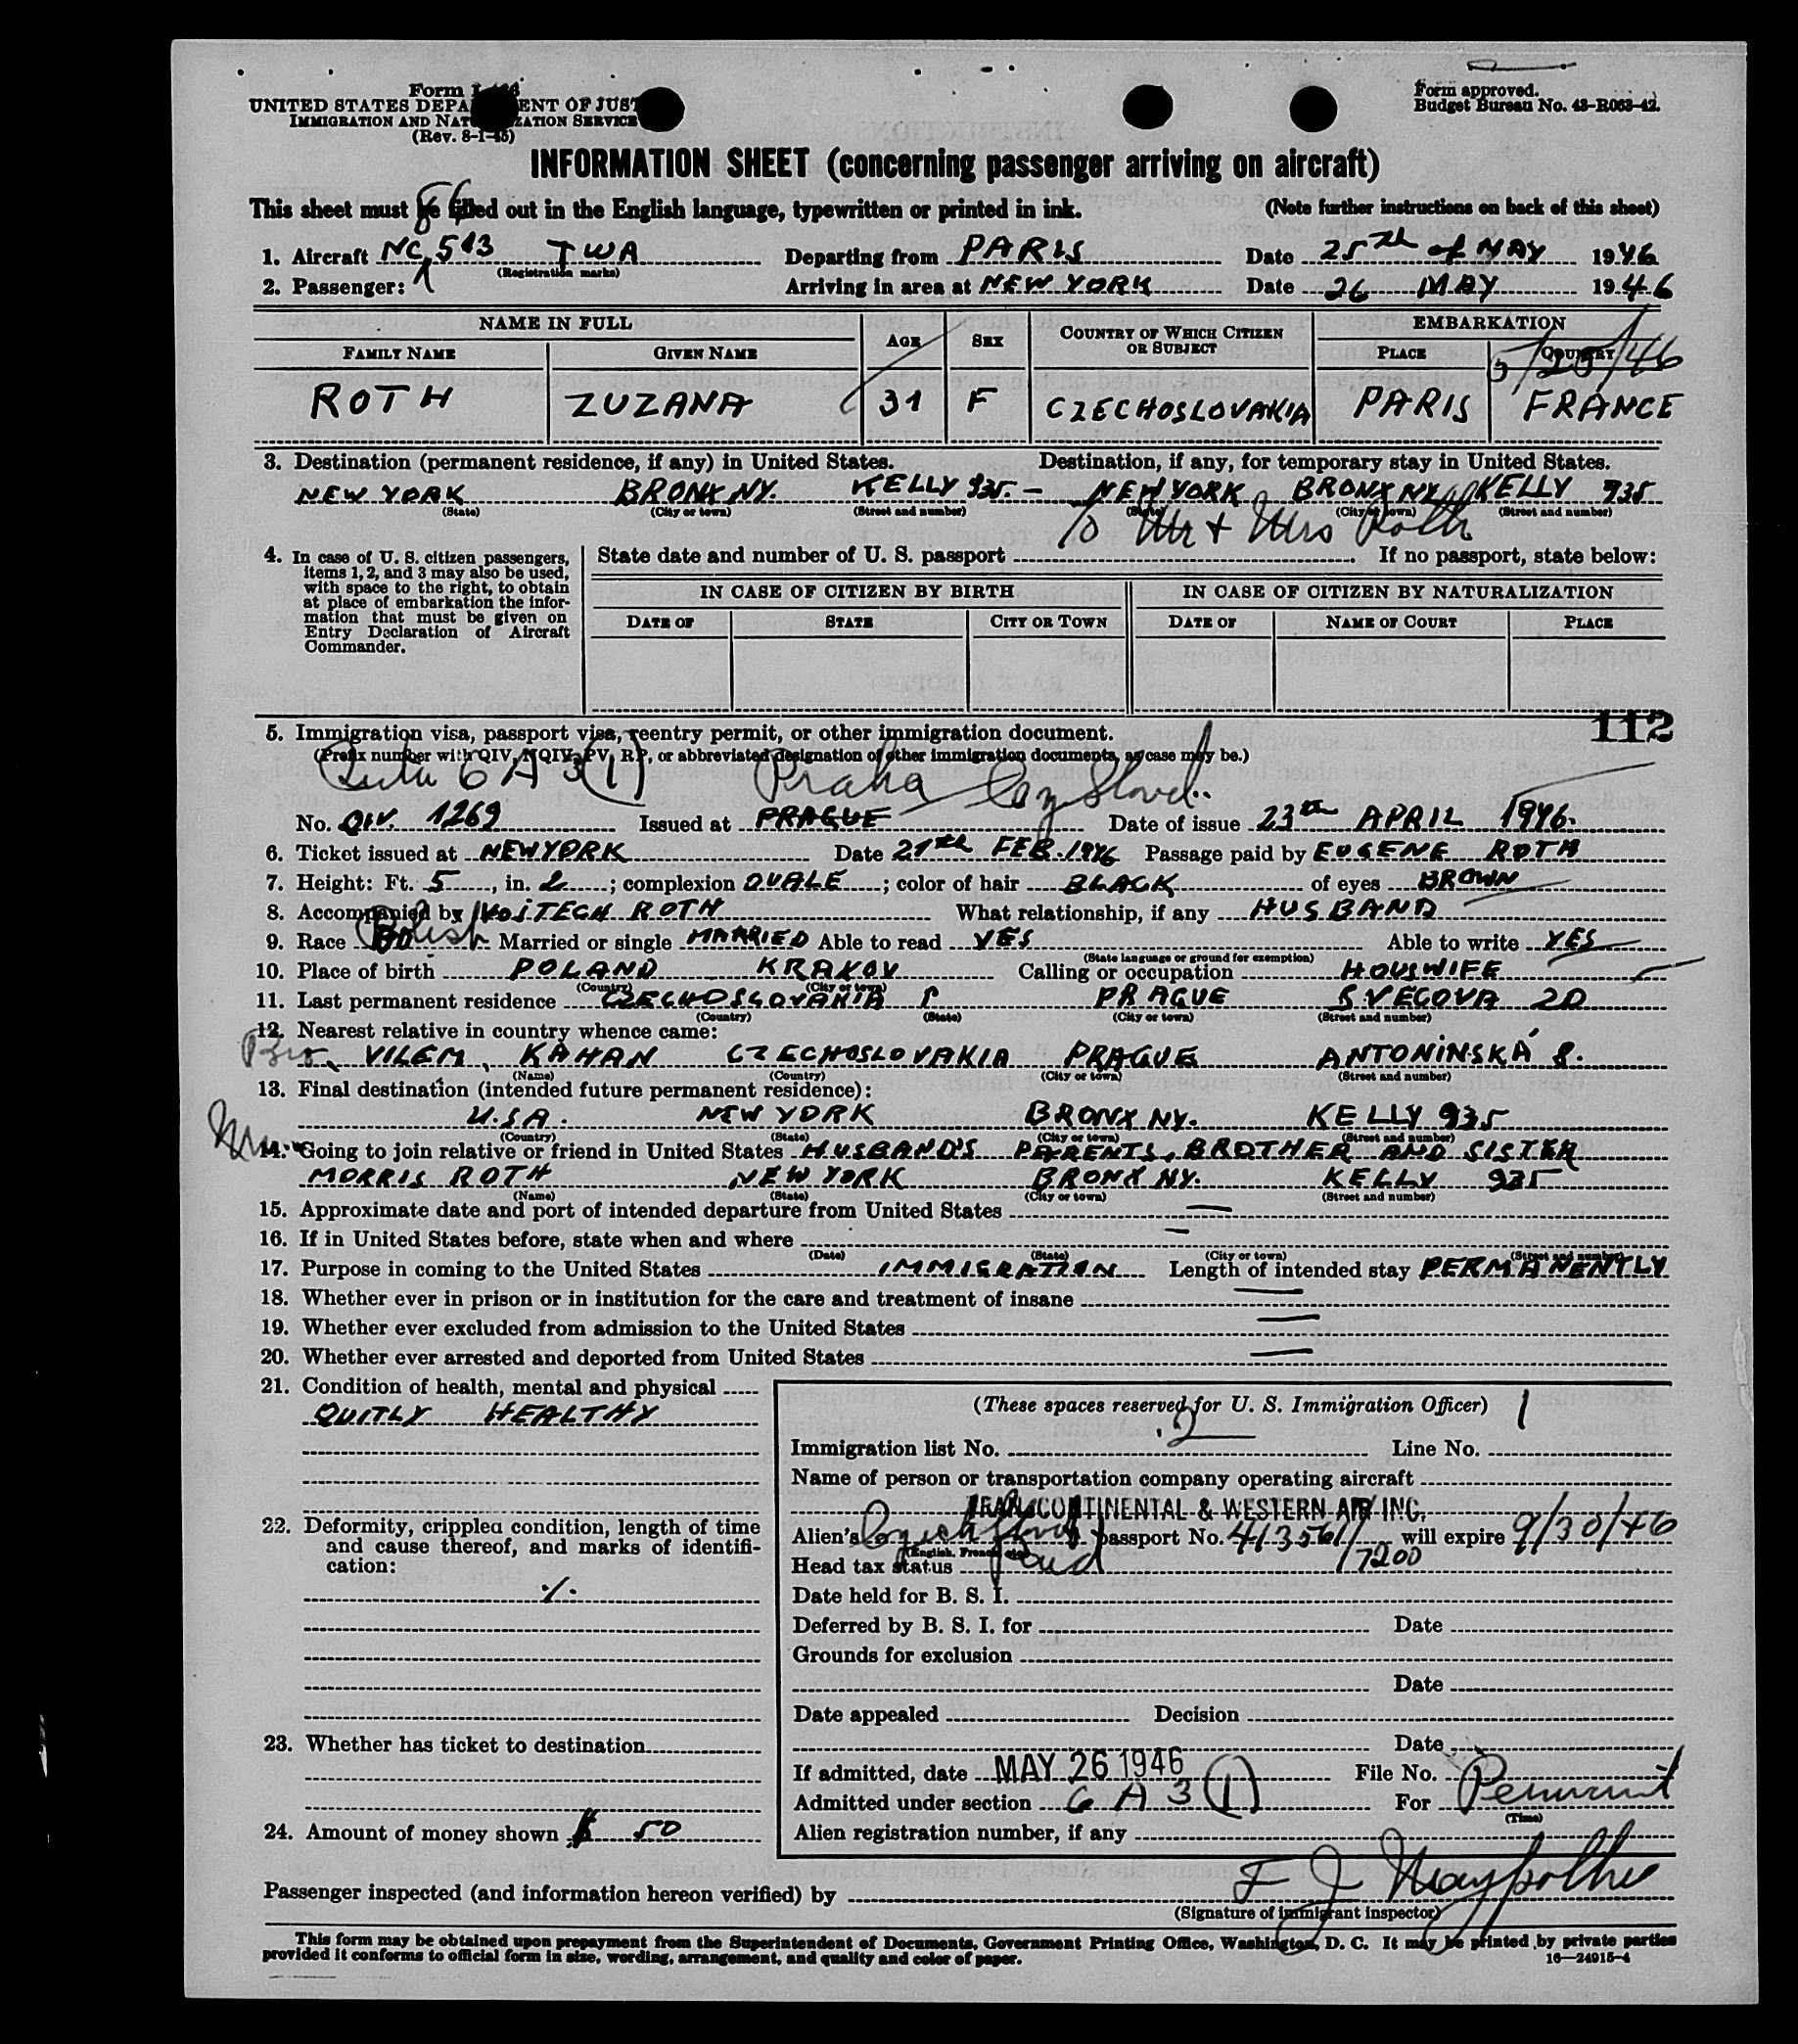 Form I-466
UNITED STATES DEPARTMENT OF JUSTICE
IMMIGRATION AND NATURALIZATION SERVICE
(Rev. 8-1-45)
Form approved.
Budget Bureau No. 43-R063-42.
INFORMATION SHEET (concerning passenger arriving on aircraft)
This sheet must be filled out in the English language, typewritten or printed in ink. (Note further instructions on back of this sheet)
86
1. Aircraft NC 513 TWA Departing from PARIS Date 25th of MAY 1946
(Registration marks)
2. Passenger: Arriving in area at NEW YORK Date 26 MAY 1946
NAME IN FULL AGE SEX COUNTRY OF WHICH CITIZEN OR SUBJECT EMBARKATION
FAMILY NAME GIVEN NAME PLACE COUNTRY
5/25/46
ROTH ZUZANA 31 F CZECHOSLOVAKIA PARIS FRANCE
3. Destination (permanent residence, if any) in United States. Destination, if any, for temporary stay in United States.
NEW YORK BRONX NY. KELLY 935. – NEW YORK BRONX NY. KELLY 935
(State) (City or town) (Street and number) (State) (City or town) (Street and number)
To Mr + Mrs Roth
4. In case of U. S. citizen passengers, items 1, 2, and 3 may also be used, with space to the right, to obtain at place of embarkation the information that must be given on Entry Declaration of Aircraft Commander.
State date and number of U. S. passport If no passport, state below:
IN CASE OF CITIZEN BY BIRTH IN CASE OF CITIZEN BY NATURALIZATION
DATE OF STATE CITY OR TOWN DATE OF NAME OF COURT PLACE
112
5. Immigration visa, passport visa, reentry permit, or other immigration document.
(Prefix number with QIV, NQIV, PV, R.P., or abbreviated designation of other immigration documents, as case may be.)
6 A 3 (1) Praha
No. QIV. 1269 Issued at PRAGUE Date of issue 23th APRIL 1946.
6. Ticket issued at NEWYORK Date 21th FEB. 1946 Passage paid by EUGENE ROTH
7. Height: Ft. 5, in. 2; complexion OVALE; color of hair BLACK of eyes BROWN
8. Accompanied by VOJTECH ROTH What relationship, if any HUSBAND
9. Race Polish Married or single MARRIED Able to read YES Able to write YES
(State language or ground for exemption)
10. Place of birth POLAND KRAKOV Calling or occupation HOUSWIFE
(Country) (City or town)
11. Last permanent residence CZECHOSLOVAKIA PRAGUE SVECOVA 20
(Country) (State) (City or town) (Street and number)
12. Nearest relative in country whence came:
Bro VILEM, KAHAN CZECHOSLOVAKIA PRAGUE ANTONINSKÁ 8.
(Name) (Country) (City or town) (Street and number)
13. Final destination (intended future permanent residence):
U.S.A. NEW YORK BRONX NY. KELLY 935
(Country) (State) (City or town) (Street and number)
14. Going to join relative or friend in United States HUSBAND'S PARENTS, BROTHER AND SISTER
MORRIS ROTH NEW YORK BRONX NY. KELLY 935
(Name) (State) (City or town) (Street and number)
15. Approximate date and port of intended departure from United States —
16. If in United States before, state when and where —
(Date) (State) (City or town) (Street and number)
17. Purpose in coming to the United States IMMIGRATION Length of intended stay PERMANENTLY
18. Whether ever in prison or in institution for the care and treatment of insane —
19. Whether ever excluded from admission to the United States —
20. Whether ever arrested and deported from United States —
21. Condition of health, mental and physical
QUITLY HEALTHY
22. Deformity, crippled condition, length of time and cause thereof, and marks of identification:
./.
23. Whether has ticket to destination
24. Amount of money shown $ 50
(These spaces reserved for U. S. Immigration Officer)
Immigration list No. 2 Line No. 1
Name of person or transportation company operating aircraft
TRANSCONTINENTAL & WESTERN AIR INC.
Alien's passport No. 41356/ will expire 9/30/46
(English, French, etc.)
Head tax status Paid 7200
Date held for B. S. I.
Deferred by B. S. I. for Date
Grounds for exclusion
Date
Date appealed Decision
Date
If admitted, date MAY 26 1946 File No.
Admitted under section 6 A 3 (1) For Permanent
(Time)
Alien registration number, if any
Passenger inspected (and information hereon verified) by F J
(Signature of immigrant inspector)
This form may be obtained upon prepayment from the Superintendent of Documents, Government Printing Office, Washington, D. C. It may be printed by private parties
provided it conforms to official form in size, wording, arrangement, and quality and color of paper.
16—24915-4